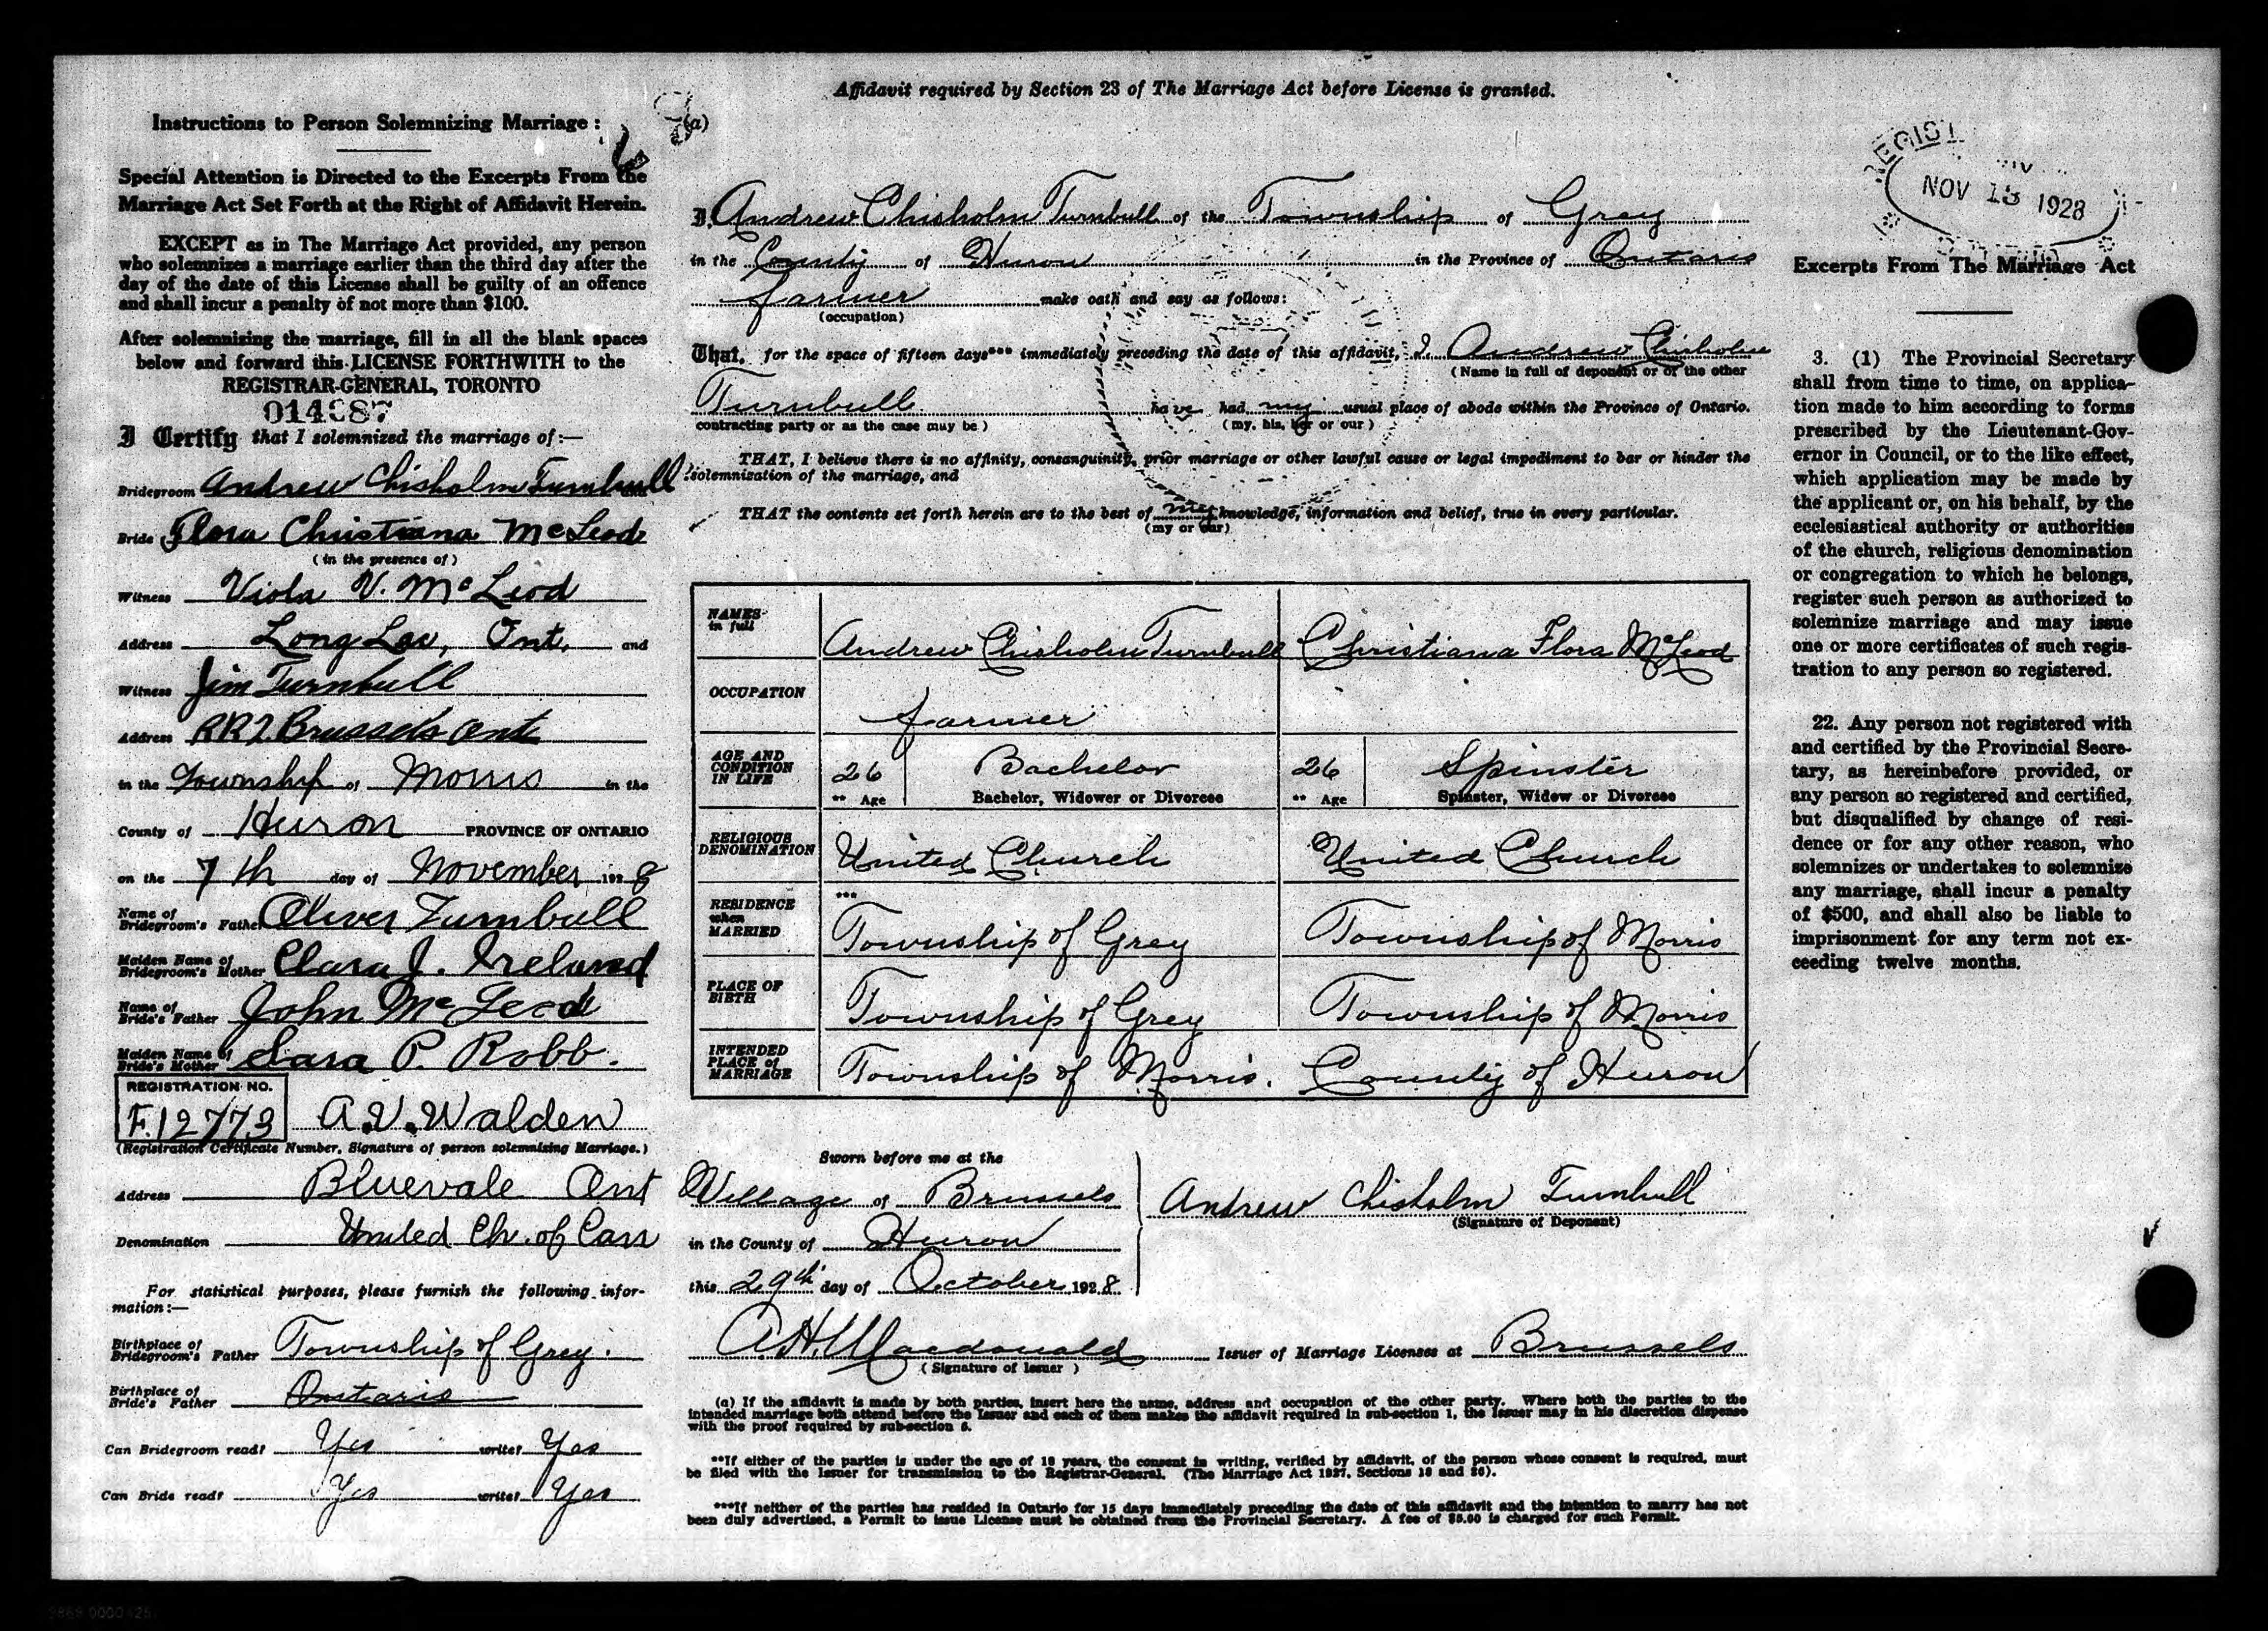 Instructions to Person Solemnizing Marriage:
Special Attention is Directed to the Excerpts From the
Marriage Act Set Forth at the Right of Affidavit Herein.
EXCEPT as in The Marriage Act provided, any person
who solemnizes a marriage earlier than the third day after the
day of the date of this License shall be guilty of an offence
and shall incur a penalty of not more than $100.
After solemnizing the marriage, fill in all the blank spaces
below and forward this LICENSE FORTHWITH to the
REGISTRAR-GENERAL, TORONTO
I Certify that I solemnized the marriage of:—
Bridegroom Andrew Chisholm Turnbull
Bride Flora Christiana McLeod
(in the presence of)
Witness Viola V. McLeod
Address Long Lac, Ont. and
Witness Jim Turnbull
Address RR2 Brussels Ont
in the Township of Morris in the
County of Huron PROVINCE OF ONTARIO
on the 7th day of November 1928
Name of
Bridegroom's Father Oliver Turnbull
Maiden Name of
Bridegroom's Mother Clara J. Ireland
Name of
Bride's Father John McLeod
Maiden Name of
Bride's Mother Sara P. Robb.
REGISTRATION NO.
F.12773 A.V. Walden
(Registration Certificate Number, Signature of person solemnizing Marriage.)
Address Bluevale Ont
Denomination United Ch. of Can
For statistical purposes, please furnish the following infor-
mation:—
Birthplace of
Bridegroom's Father Township of Grey.
Birthplace of
Bride's Father Ontario
Can Bridegroom read? Yes write? Yes
Can Bride read? Yes write? Yes
Affidavit required by Section 23 of The Marriage Act before License is granted.
(a)
I, Andrew Chisholm Turnbull of the Township of Grey
in the County of Huron in the Province of Ontario
farmer make oath and say as follows:
(occupation)
That, for the space of fifteen days*** immediately preceding the date of this affidavit, I Andrew Chisholm
(Name in full of deponent or of the other
Turnbull have had my usual place of abode within the Province of Ontario.
contracting party or as the case may be) (my, his, her or our)
THAT, I believe there is no affinity, consanguinity, prior marriage or other lawful cause or legal impediment to bar or hinder the
solemnization of the marriage, and
THAT the contents set forth herein are to the best of my knowledge, information and belief, true in every particular.
(my or our)
NAMES in full Andrew Chisholm Turnbull Christiana Flora McLeod
OCCUPATION farmer
AGE AND CONDITION IN LIFE 26 Bachelor 26 Spinster
** Age Bachelor, Widower or Divorcee ** Age Spinster, Widow or Divorcee
RELIGIOUS DENOMINATION United Church United Church
***
RESIDENCE when MARRIED Township of Grey Township of Morris
PLACE OF BIRTH Township of Grey Township of Morris
INTENDED PLACE of MARRIAGE Township of Morris. County of Huron
Sworn before me at the
Village of Brussels
in the County of Huron
this 29th day of October 1928.
Andrew Chisholm Turnbull
(Signature of Deponent)
A.H. Macdonald Issuer of Marriage Licenses at Brussels
(Signature of Issuer)
(a) If the affidavit is made by both parties, insert here the name, address and occupation of the other party. Where both the parties to the
intended marriage both attend before the Issuer and each of them makes the affidavit required in sub-section 1, the Issuer may in his discretion dispense
with the proof required by sub-section 6.
**If either of the parties is under the age of 18 years, the consent in writing, verified by affidavit, of the person whose consent is required, must
be filed with the Issuer for transmission to the Registrar-General. (The Marriage Act 1927, Sections 18 and 20).
***If neither of the parties has resided in Ontario for 15 days immediately preceding the date of this affidavit and the intention to marry has not
been duly advertised, a Permit to issue License must be obtained from the Provincial Secretary. A fee of $5.00 is charged for such Permit.
NOV 13 1928
Excerpts From The Marriage Act
3. (1) The Provincial Secretary
shall from time to time, on applica-
tion made to him according to forms
prescribed by the Lieutenant-Gov-
ernor in Council, or to the like effect,
which application may be made by
the applicant or, on his behalf, by the
ecclesiastical authority or authorities
of the church, religious denomination
or congregation to which he belongs,
register such person as authorized to
solemnize marriage and may issue
one or more certificates of such regis-
tration to any person so registered.
22. Any person not registered with
and certified by the Provincial Secre-
tary, as hereinbefore provided, or
any person so registered and certified,
but disqualified by change of resi-
dence or for any other reason, who
solemnizes or undertakes to solemnize
any marriage, shall incur a penalty
of $500, and shall also be liable to
imprisonment for any term not ex-
ceeding twelve months.